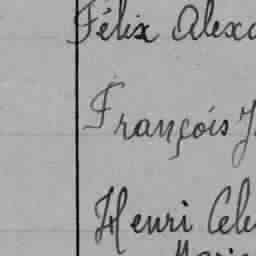 Félix Alexa
François J
Henri Cele
Marie